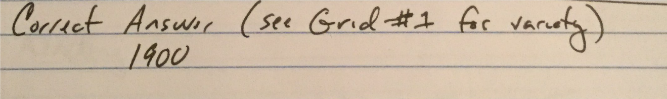 Correct Answer (see Grid #1 for variety)
1900